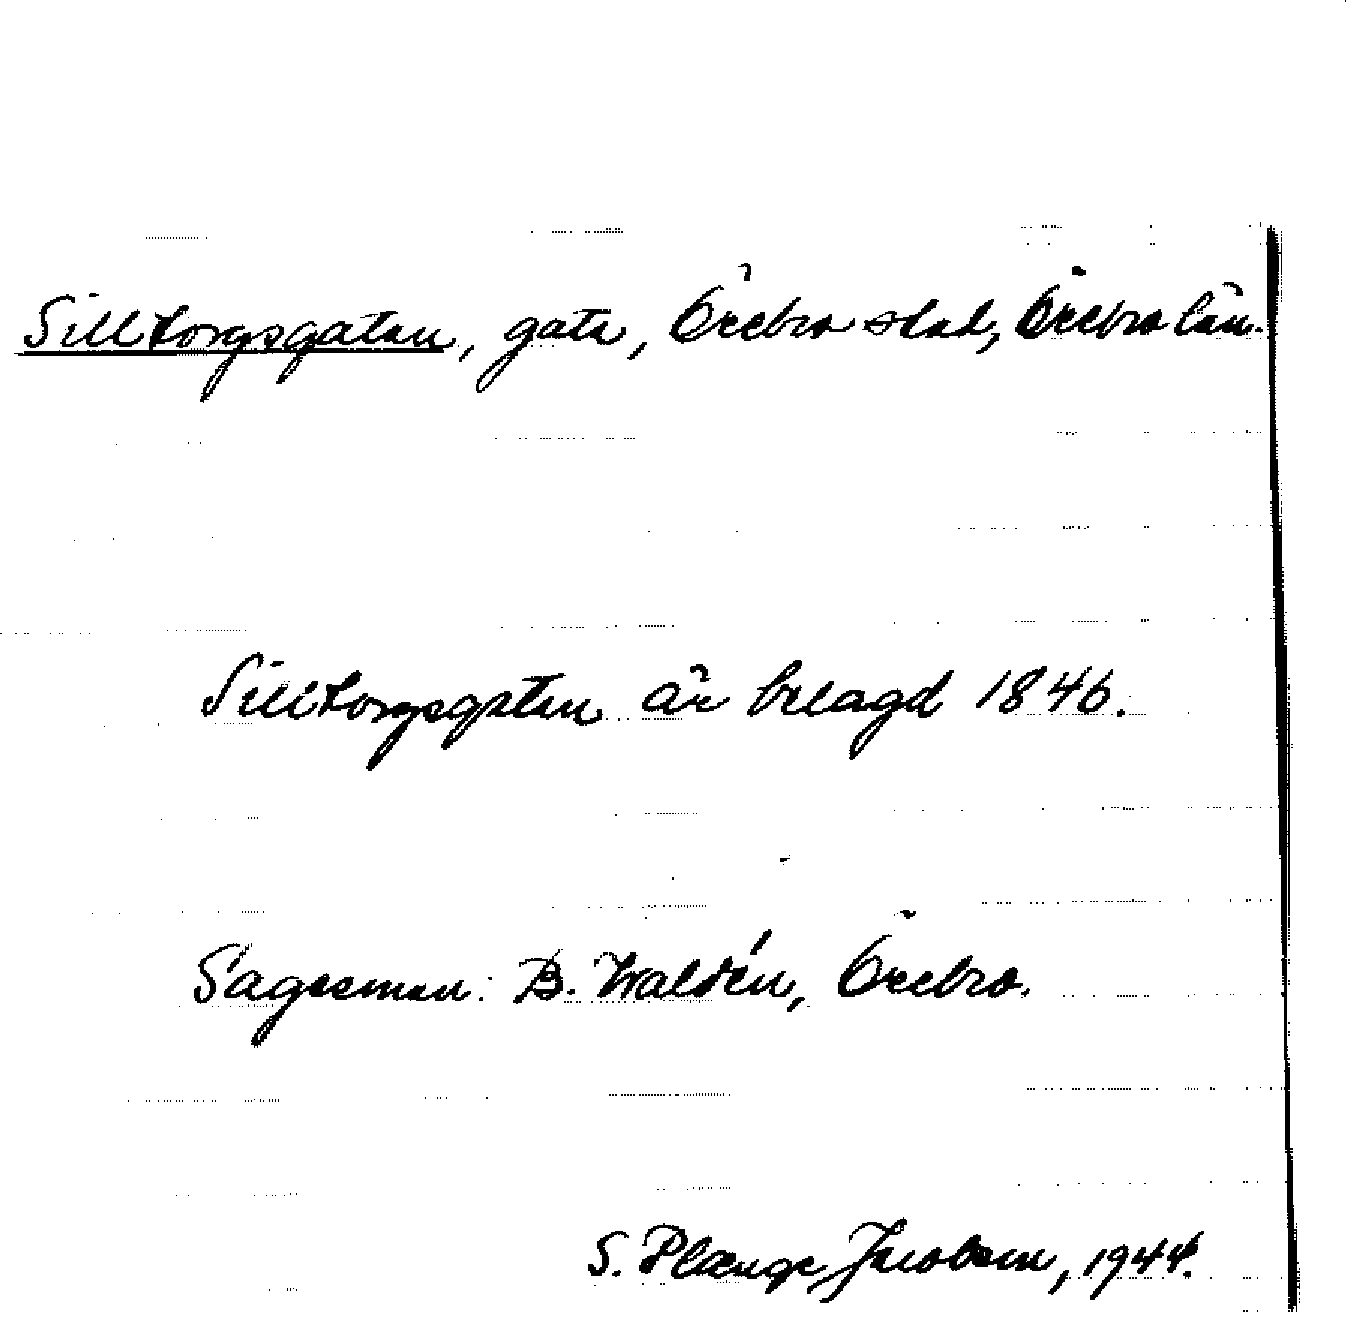 Silltorgsgatan, gata, Örebro stad, Örebro län.
Silltorgsgatan är belagd 1846.
Sagesman: B. Waldén, Örebro.
S. Plænge Jacobson, 1944.